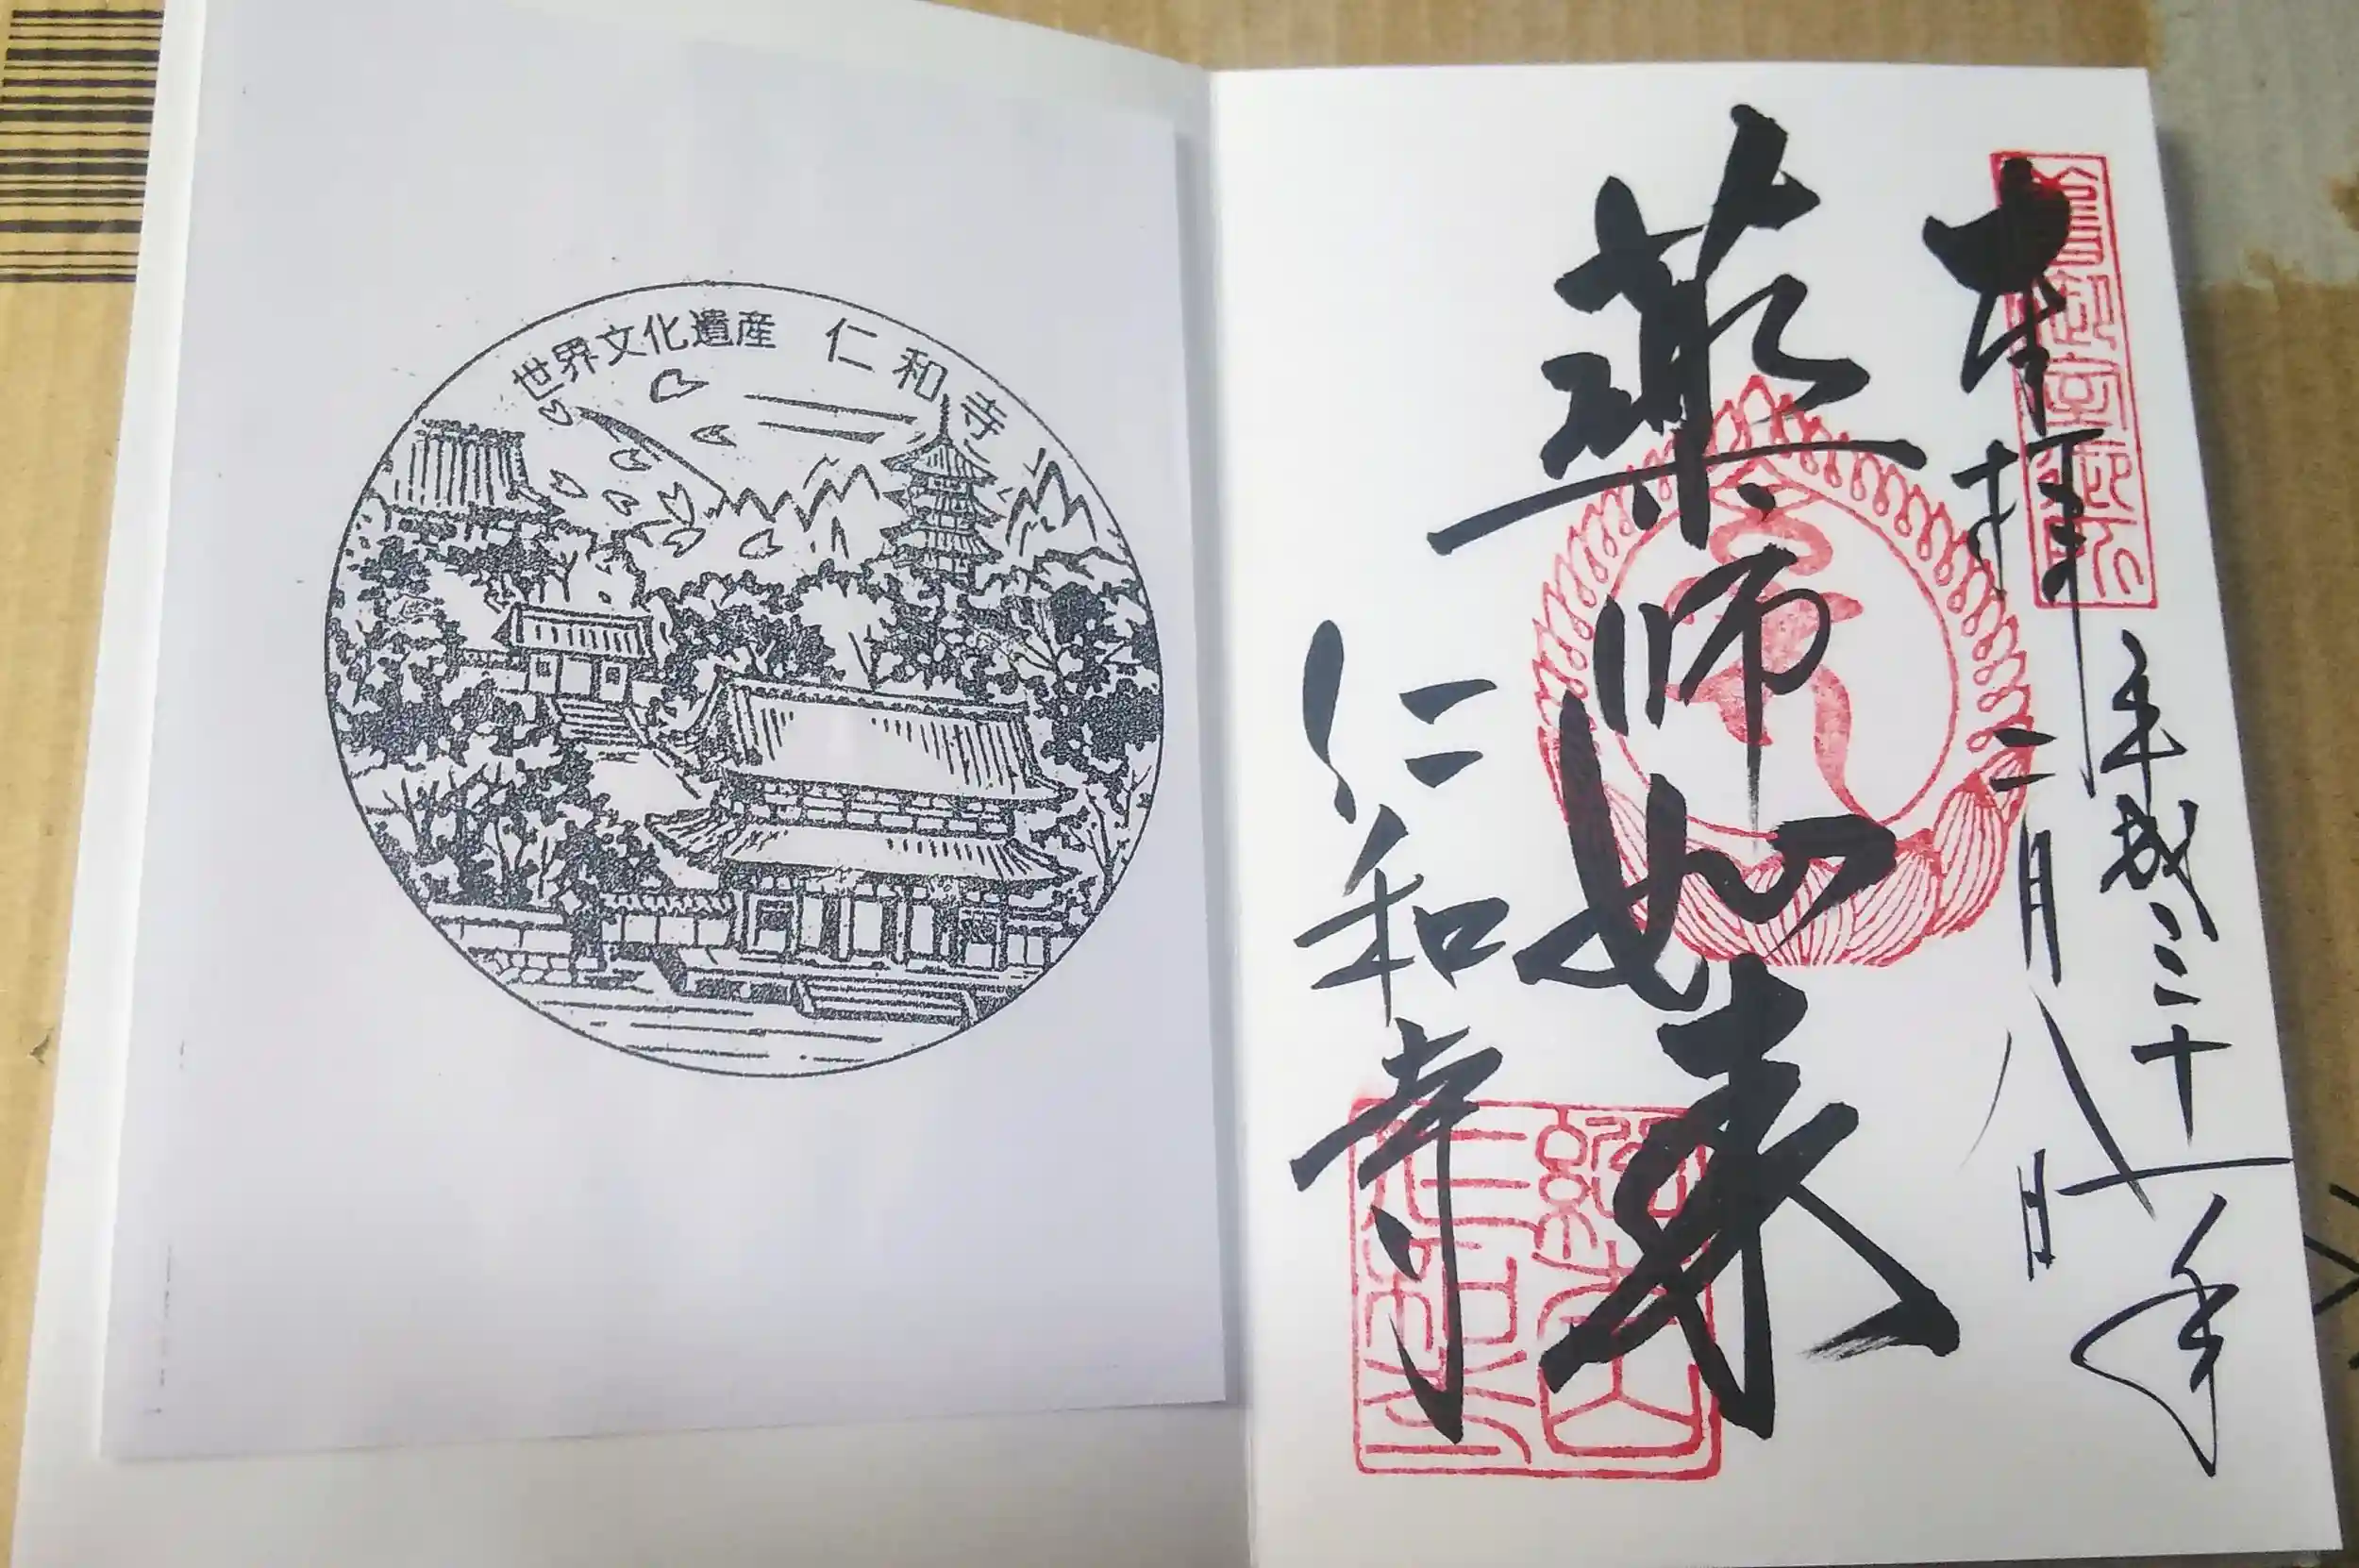 世界文化遺産 仁和寺
奉拝 平成三十一年
二月八日
薬師如来
仁和寺